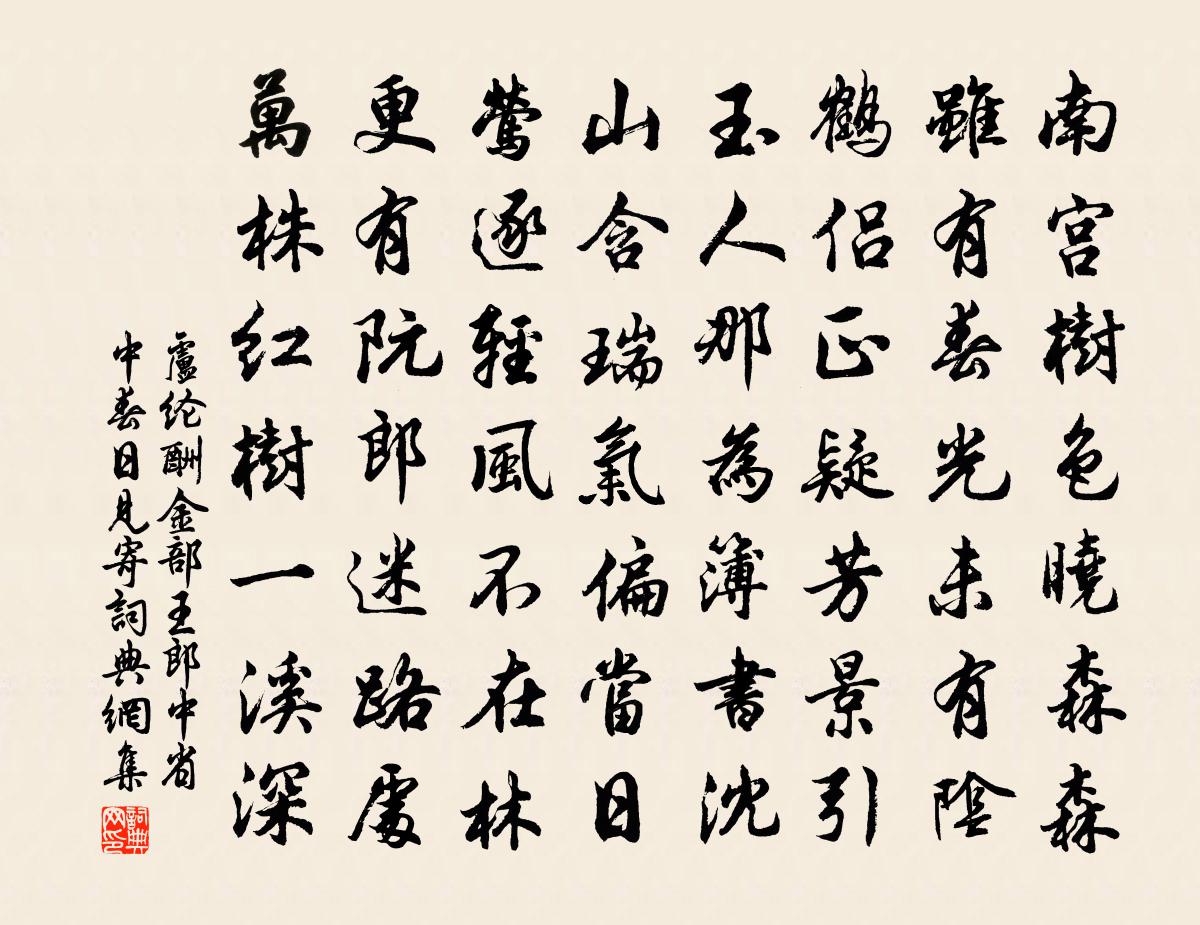 南宮樹色曉森森
雖有春光未有陰
鶴侶正疑芳景引
玉人那為簿書沈
山含瑞氣偏當日
鶯逐輕風不在林
更有阮郎迷路處
萬株紅樹一溪深
盧纶酬金部王郎中省
中春日見寄詞典網集
詞典
网印